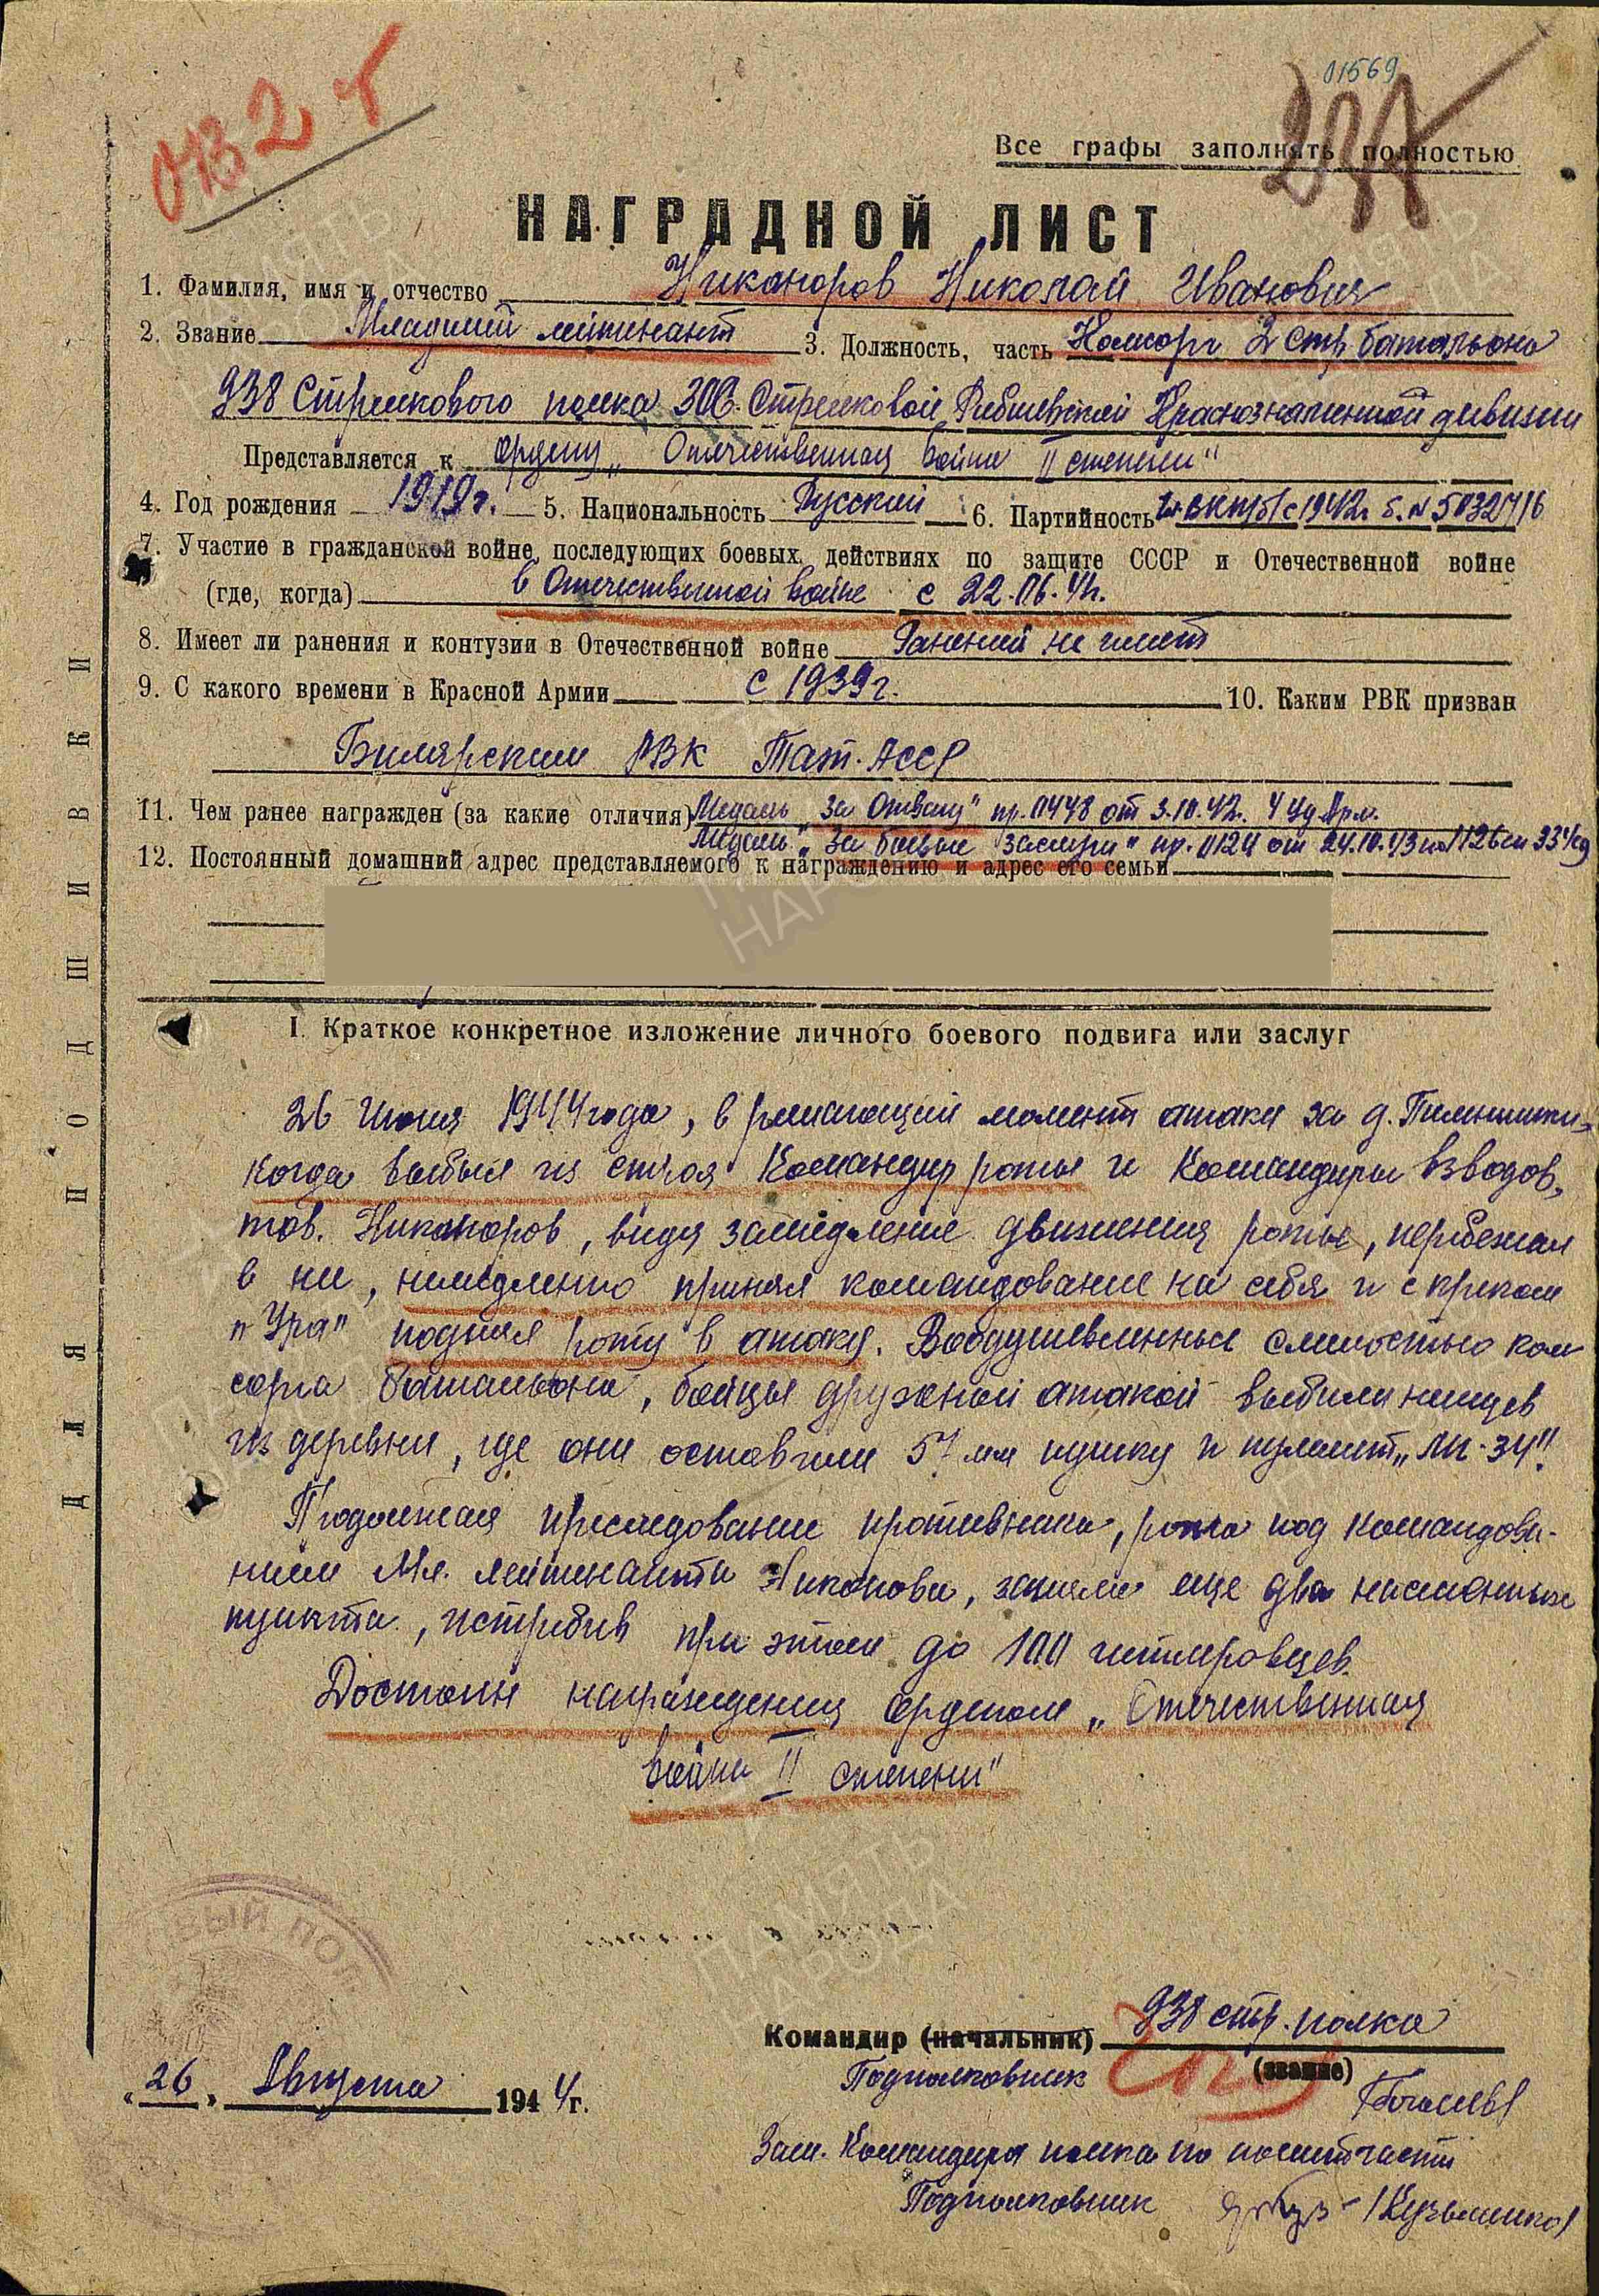 01569
Все графы заполнять полностью
НАГРАДНОЙ ЛИСТ
1. Фамилия, имя и отчество Никаноров Николай Иванович
2. Звание Младший лейтенант 3. Должность, часть Комсорг 2 стр. батальона
938 Стрелкового полка 306 Стрелковой Рибшевской Краснознаменной дивизии
Представляется к ордену „Отечественная война II степени"
4. Год рождения 1919г. 5. Национальность Русский 6. Партийность ВКП/б/ с 1942г
7. Участие в гражданской войне, последующих боевых действиях по защите СССР и Отечественной войне
(где, когда) в Отечественной войне с 22.06.41г.
8. Имеет ли ранения и контузии в Отечественной войне Ранений не имеет
9. С какого времени в Красной Армии с 1939г. 10. Каким РВК призван
Билярским РВК Тат. АССР
11. Чем ранее награжден (за какие отличия) Медаль „За Отвагу" пр. 0448 от 3.10.42г. 4 Уд. Арм.
Медаль „За боевые заслуги" пр. 024 от 24.10.43 по 1126 сп 334 сд
12. Постоянный домашний адрес представляемого к награждению и адрес его семьи
I. Краткое конкретное изложение личного боевого подвига или заслуг
26 Июня 1944 года, в решающий момент атаки за д.
когда выбыл из строя Командир роты и Командиры взводов,
тов. Никаноров, видя замедление движения роты, перебежал
в нее, немедленно принял командование на себя и с криком
"Ура" поднял роту в атаку. Воодушевленные смелостью ком
сорга батальона, бойцы дружной атакой выбили немцев
из деревни, где они оставили 57 мм пушку и пулемет „МГ-34".
Продолжая преследование противника, рота под командова-
нием Мл. лейтенанта Никонова, заняла еще два населенных
пункта, истребив при этом до 100 гитлеровцев.
Достоин награждения орденом „Отечественная
война II степени"
ВЫЙ ПОЛ
Командир (начальник) 938 стр. полка
(звание)
Подполковник
„26" Августа 1944г.
Зам. Командира полка по политчасти
Подполковник /Кузьменко/
ДЛЯ ПОДШИВКИ
ПАМЯТЬ НАРОДА